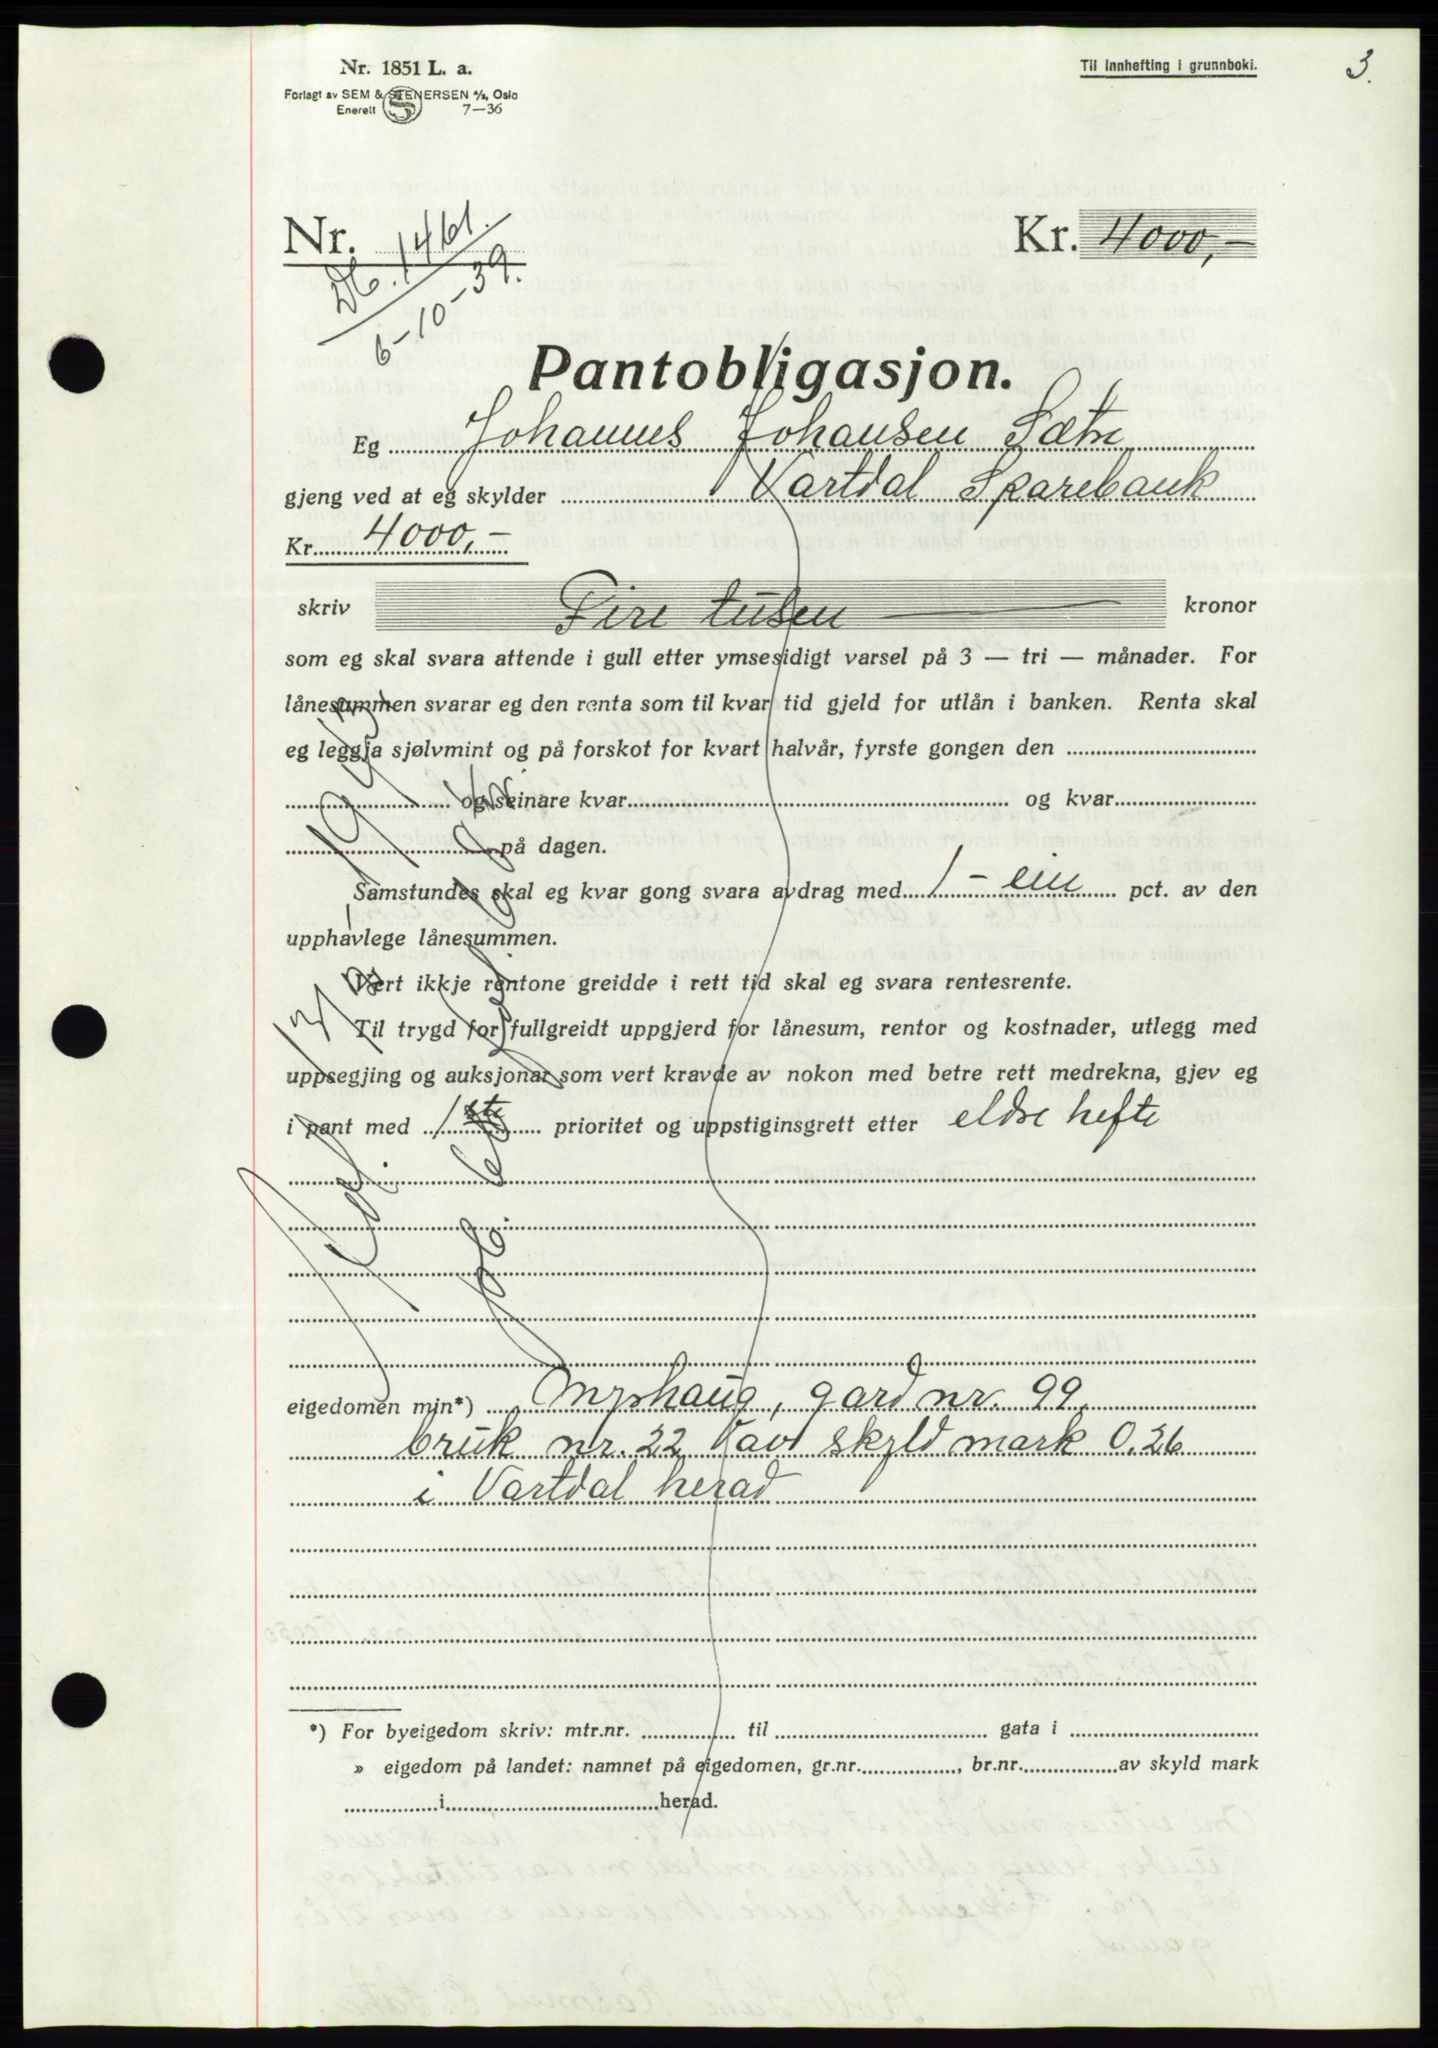 3.
Nr. 1851 L. a.
Til innhefting i grunnboki.
Forlagt av SEM & STENERSEN A/S, Oslo
Enerett 7—36
Nr.
Db. 1461.
6-10-39.
Kr. 4000,-
Pantobligasjon.
Eg Johannes Johansen Sætre
gjeng ved at eg skylder Vartdal Sparebank
Kr. 4000,-
skriv Fire tusen kronor
som eg skal svara attende i gull etter ymsesidigt varsel på 3 — tri — månader. For
lånesummen svarar eg den renta som til kvar tid gjeld for utlån i banken. Renta skal
eg leggja sjølvmint og på forskot for kvart halvår, fyrste gongen den
og seinare kvar og kvar
på dagen.
Samstundes skal eg kvar gong svara avdrag med 1 - ein pct. av den
upphavlege lånesummen.
Vert ikkje rentone greidde i rett tid skal eg svara rentesrente.
Til trygd for fullgreidt uppgjerd for lånesum, rentor og kostnader, utlegg med
uppsegjing og auksjonar som vert kravde av nokon med betre rett medrekna, gjev eg
i pant med 1ste prioritet og uppstiginsgrett etter eldre hefte
eigedomen min*) Myrhaug, gard nr. 99,
bruk nr. 22 av skyld mark 0.26
i Vartdal herad
*) For byeigedom skriv: mtr.nr. til gata i
» eigedom på landet: namnet på eigedomen, gr.nr. , br.nr. av skyld mark
i herad.